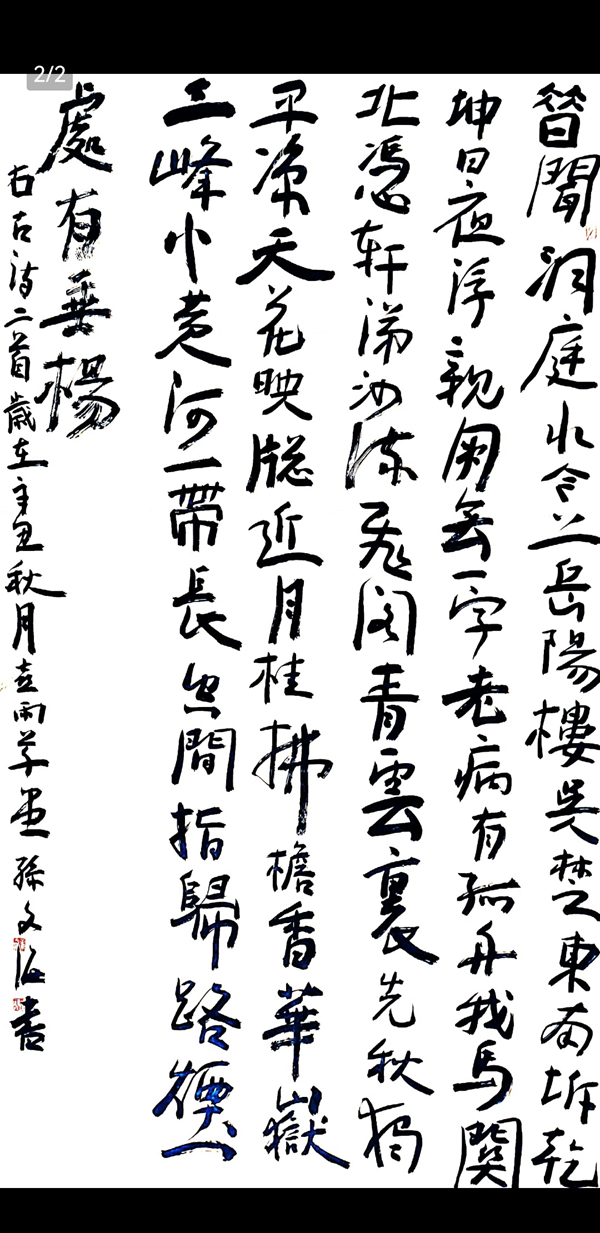 2/2
昔聞洞庭水今上岳陽樓吳楚東南坼乾
坤日夜浮親朋無一字老病有孤舟戎馬關
北憑軒涕泗流飛閣青雲裏先秋獨
平涼天花映牕近月桂拂檐香華嶽
三峰小黃河一帶長空間指歸路煙
處有垂楊
右古詩二首歲在辛丑秋月喜雨草堂孫文海書